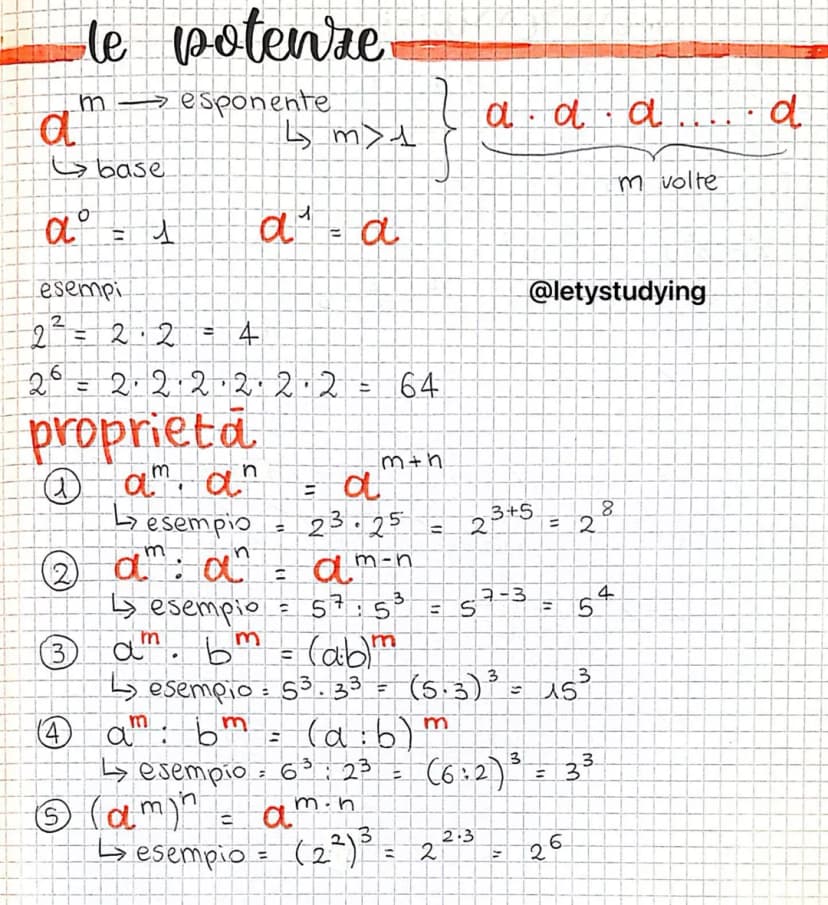 le potenze
a^m → esponente } a · a · a ..... · a
↳ m>1
↳ base
m volte
a^0 = 1 a^1 = a
esempi
@letystudying
2^2 = 2 · 2 = 4
2^6 = 2 · 2 · 2 · 2 · 2 · 2 = 64
proprietā
① a^m · a^n = a^m+n
↳ esempio = 2^3 · 2^5 = 2^3+5 = 2^8
② a^m : a^n = a^m-n
↳ esempio = 5^7 : 5^3 = 5^7-3 = 5^4
③ a^m · b^m = (a·b)^m
↳ esempio = 5^3 · 3^3 = (5·3)^3 = 15^3
④ a^m : b^m = (a : b)^m
↳ esempio = 6^3 : 2^3 = (6:2)^3 = 3^3
⑤ (a^m)^n = a^m·n
↳ esempio = (2^2)^3 = 2^2·3 = 2^6